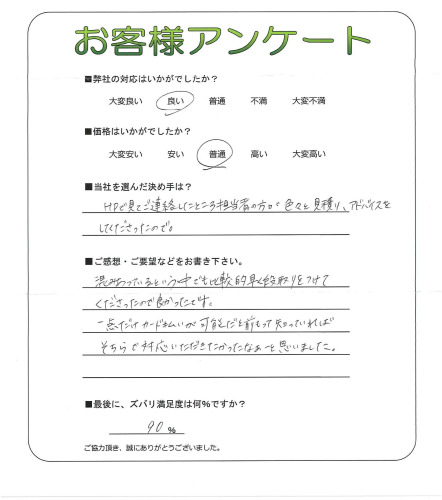 お客様アンケート
■弊社の対応はいかがでしたか?
大変良い 良い 普通 不満 大変不満
■価格はいかがでしたか?
大変安い 安い 普通 高い 大変高い
■当社を選んだ決め手は?
HPで見てご連絡したところ担当者の方が色々と見積り、アドバイスを
してくださったので。
■ご感想・ご要望などをお書き下さい。
混み合っているという中でも比較的早く段取りをつけて
くださったので良かったです。
一点だけカード払いが可能だと前もって知っていれば
そちらで対応いただきたかったなぁーと思いました。
■最後に、ズバリ満足度は何%ですか?
90 %
ご協力頂き、誠にありがとうございました。